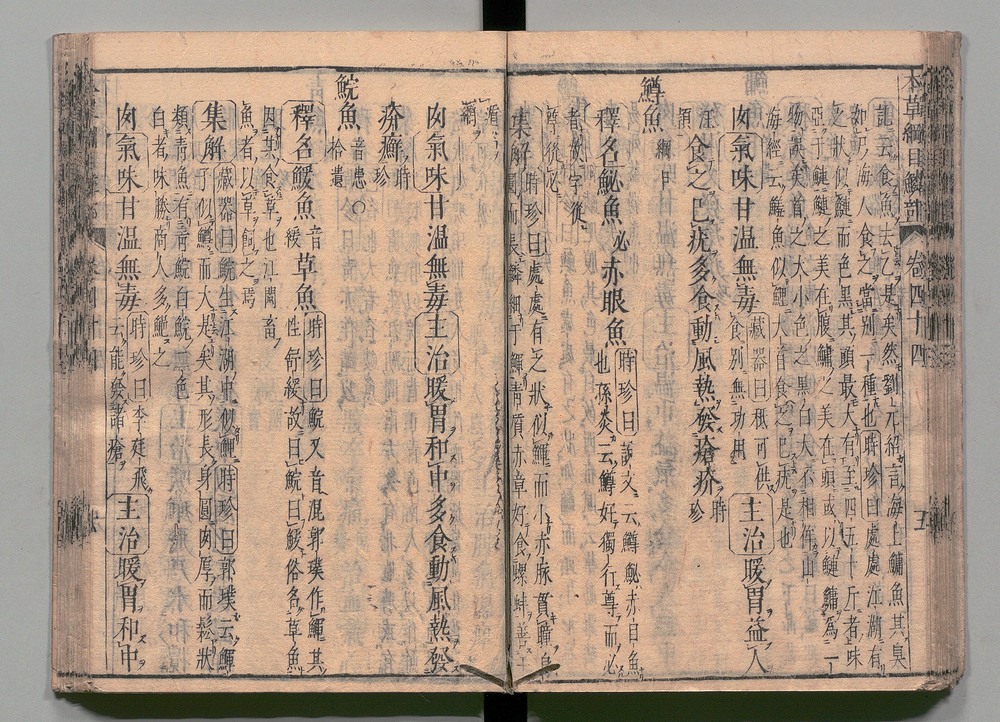 本草綱目鱗部 卷四十四 五
記云食魚去乙是矣然劉元紹言海上鱅魚其臭
如尸海人食之當別一種也時珍曰處處江湖有
之狀似鰱而色黑其頭最大有至四五十斤者味
亞于鰱鰱之美在腹鱅之美在頭或以鰱鱅為一
物誤矣首之大小色之黑白大不相侔山
海經云鱃魚似鯉大首食之已疣是也
肉氣味甘温無毒藏器曰秪可供食別無功用主治暖胃益人
汪穎食之已疣多食動風熱發瘡疥時珍
鱒魚綱目
釋名鮅魚必赤眼魚時珍曰說文云鱒鮅赤目魚也孫炎云鱒好獨行尊而必
者故字從
尊從必
集解時珍曰處處有之狀似鯶而小赤脉貫瞳身圓而長鱗細于鯶青質赤章好食螺蚌善于
遁
網
肉氣味甘温無毒主治暖胃和中多食動風熱發
疥癬時珍
鯇魚音患拾遺
釋名鰀魚音緩草魚時珍曰鯇又音混郭璞作鯶其性舒緩故曰鯇曰鰀俗名草魚
因其食草也江閩畜
魚者以草飼之焉
集解藏器曰鯇生江湖中似鯉時珍曰郭璞云鯶子似鱒而大是矣其形長身圓肉厚而鬆狀
類青魚有青鯇白鯇二色
白者味勝商人多鮑之
肉氣味甘温無毒時珍曰李廷飛云能發諸瘡主治暖胃和中